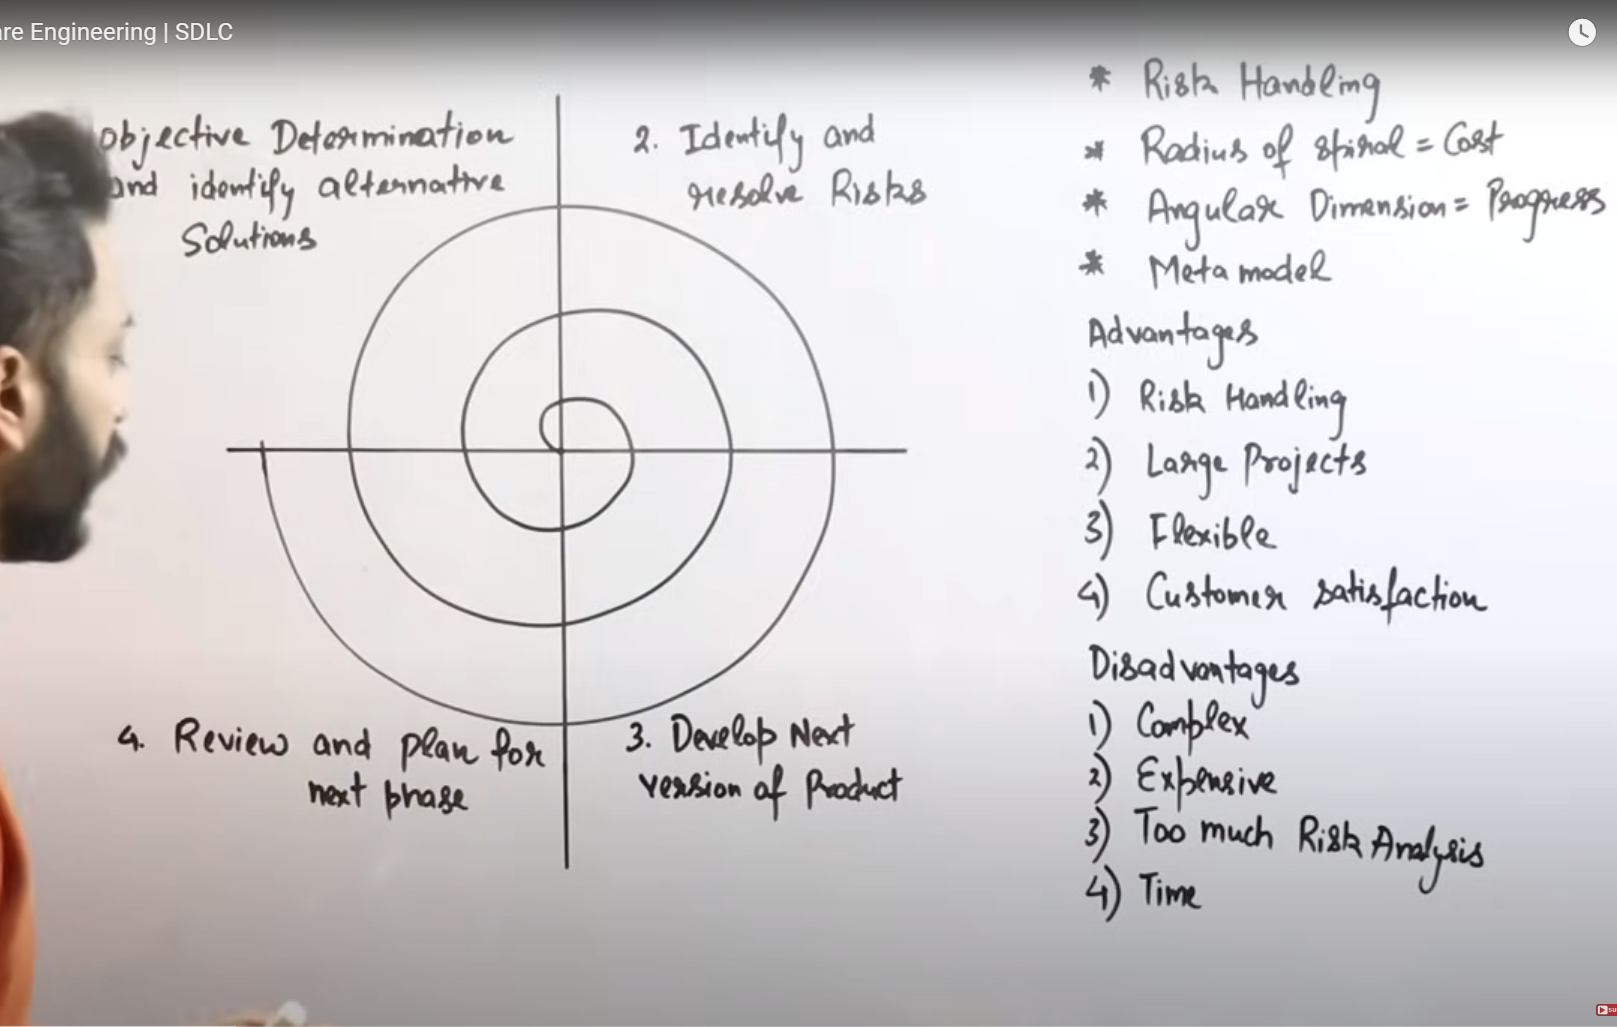 re Engineering | SDLC
objective Determination
and identify alternative
Solutions
2. Identify and
resolve Risks
4. Review and plan for
next phase
3. Develop Next
version of Product
* Risk Handling
* Radius of spiral = Cost
* Angular Dimension = Progress
* Meta model
Advantages
1) Risk Handling
2) Large Projects
3) Flexible
4) Customer satisfaction
Disadvantages
1) Complex
2) Expensive
3) Too much Risk Analysis
4) Time